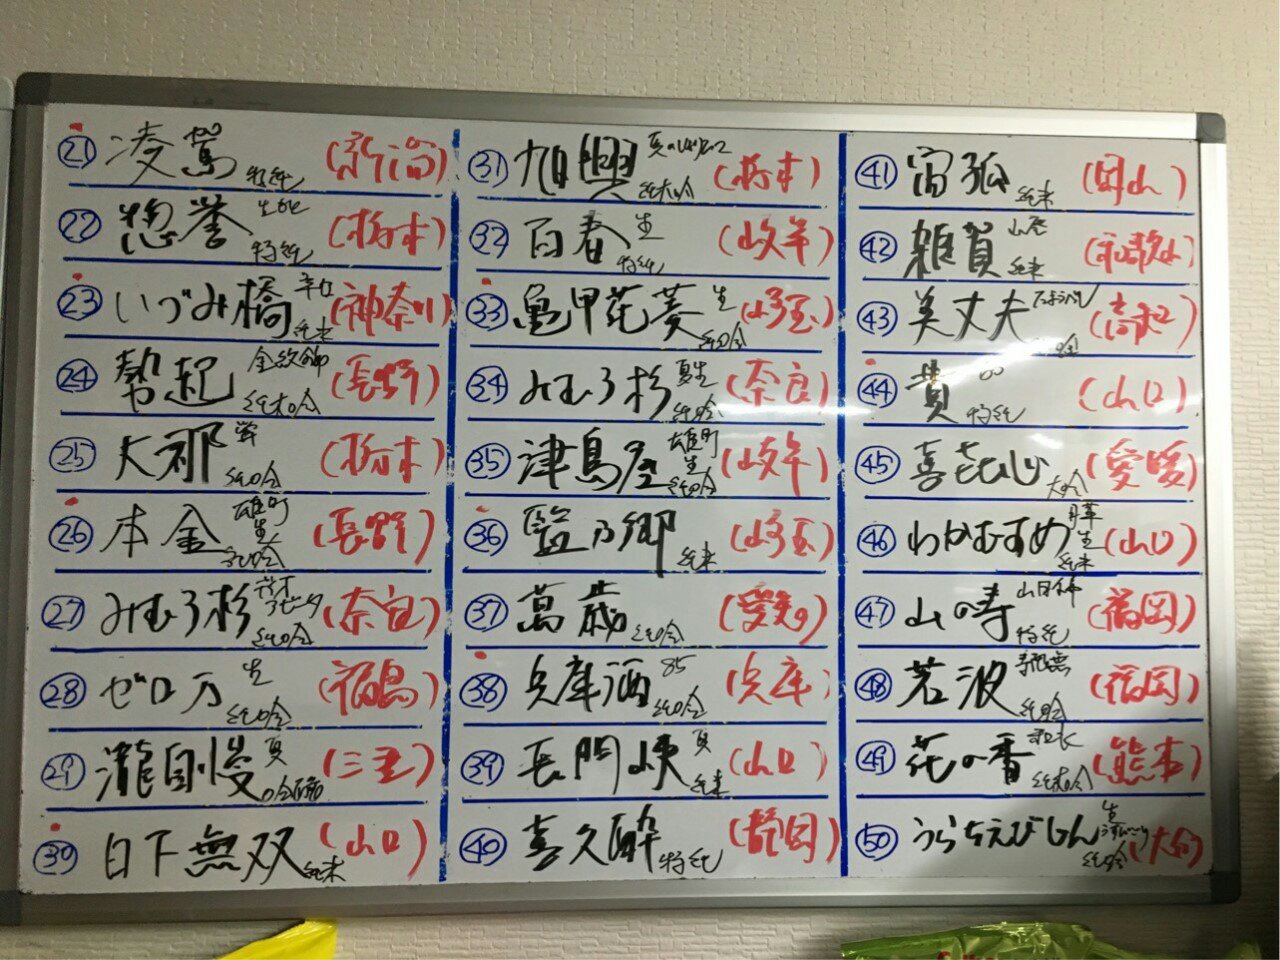 ㉑ 凌駕 特純 (新潟)
㉒ 惣誉 生酛 特純 (栃木)
㉓ いづみ橋 辛口 純米 (神奈川)
㉔ 勢起 金紋錦 純大吟 (長野)
㉕ 大那 蛍 純吟 (栃木)
㉖ 本金 雄町 生 純吟 (長野)
㉗ みむろ杉 純吟 (奈良)
㉘ ゼロ万 生 純吟 (福島)
㉙ 瀧自慢 夏 吟醸 (三重)
㉚ 日下無双 純米 (山口)
㉛ 旭興 夏の 純大吟 (栃木)
㉜ 百春 生 特純 (岐阜)
㉝ 亀甲花菱 生 純吟 (埼玉)
㉞ みむろ杉 夏生 純吟 (奈良)
㉟ 津島屋 雄町 生 純吟 (岐阜)
㊱ 藍乃郷 純米 (埼玉)
㊲ 萬歳 純吟 (愛知)
㊳ 兵庫酒 85 純吟 (兵庫)
㊴ 長門峡 夏 純米 (山口)
㊵ 喜久酔 特純 (静岡)
㊶ 宙狐 純米 (岡山)
㊷ 雑賀 山廃 純米 (和歌山)
㊸ 美丈夫 (高知)
㊹ 貴 80 特純 (山口)
㊺ 喜七心 大吟 (愛媛)
㊻ わかむすめ 月草 生 純米 (山口)
㊼ 山の寿 山田錦 特純 (福岡)
㊽ 若波 純吟 (福岡)
㊾ 花の香 和水 純大吟 (熊本)
㊿ うらちえびじん 生 純吟 (大分)